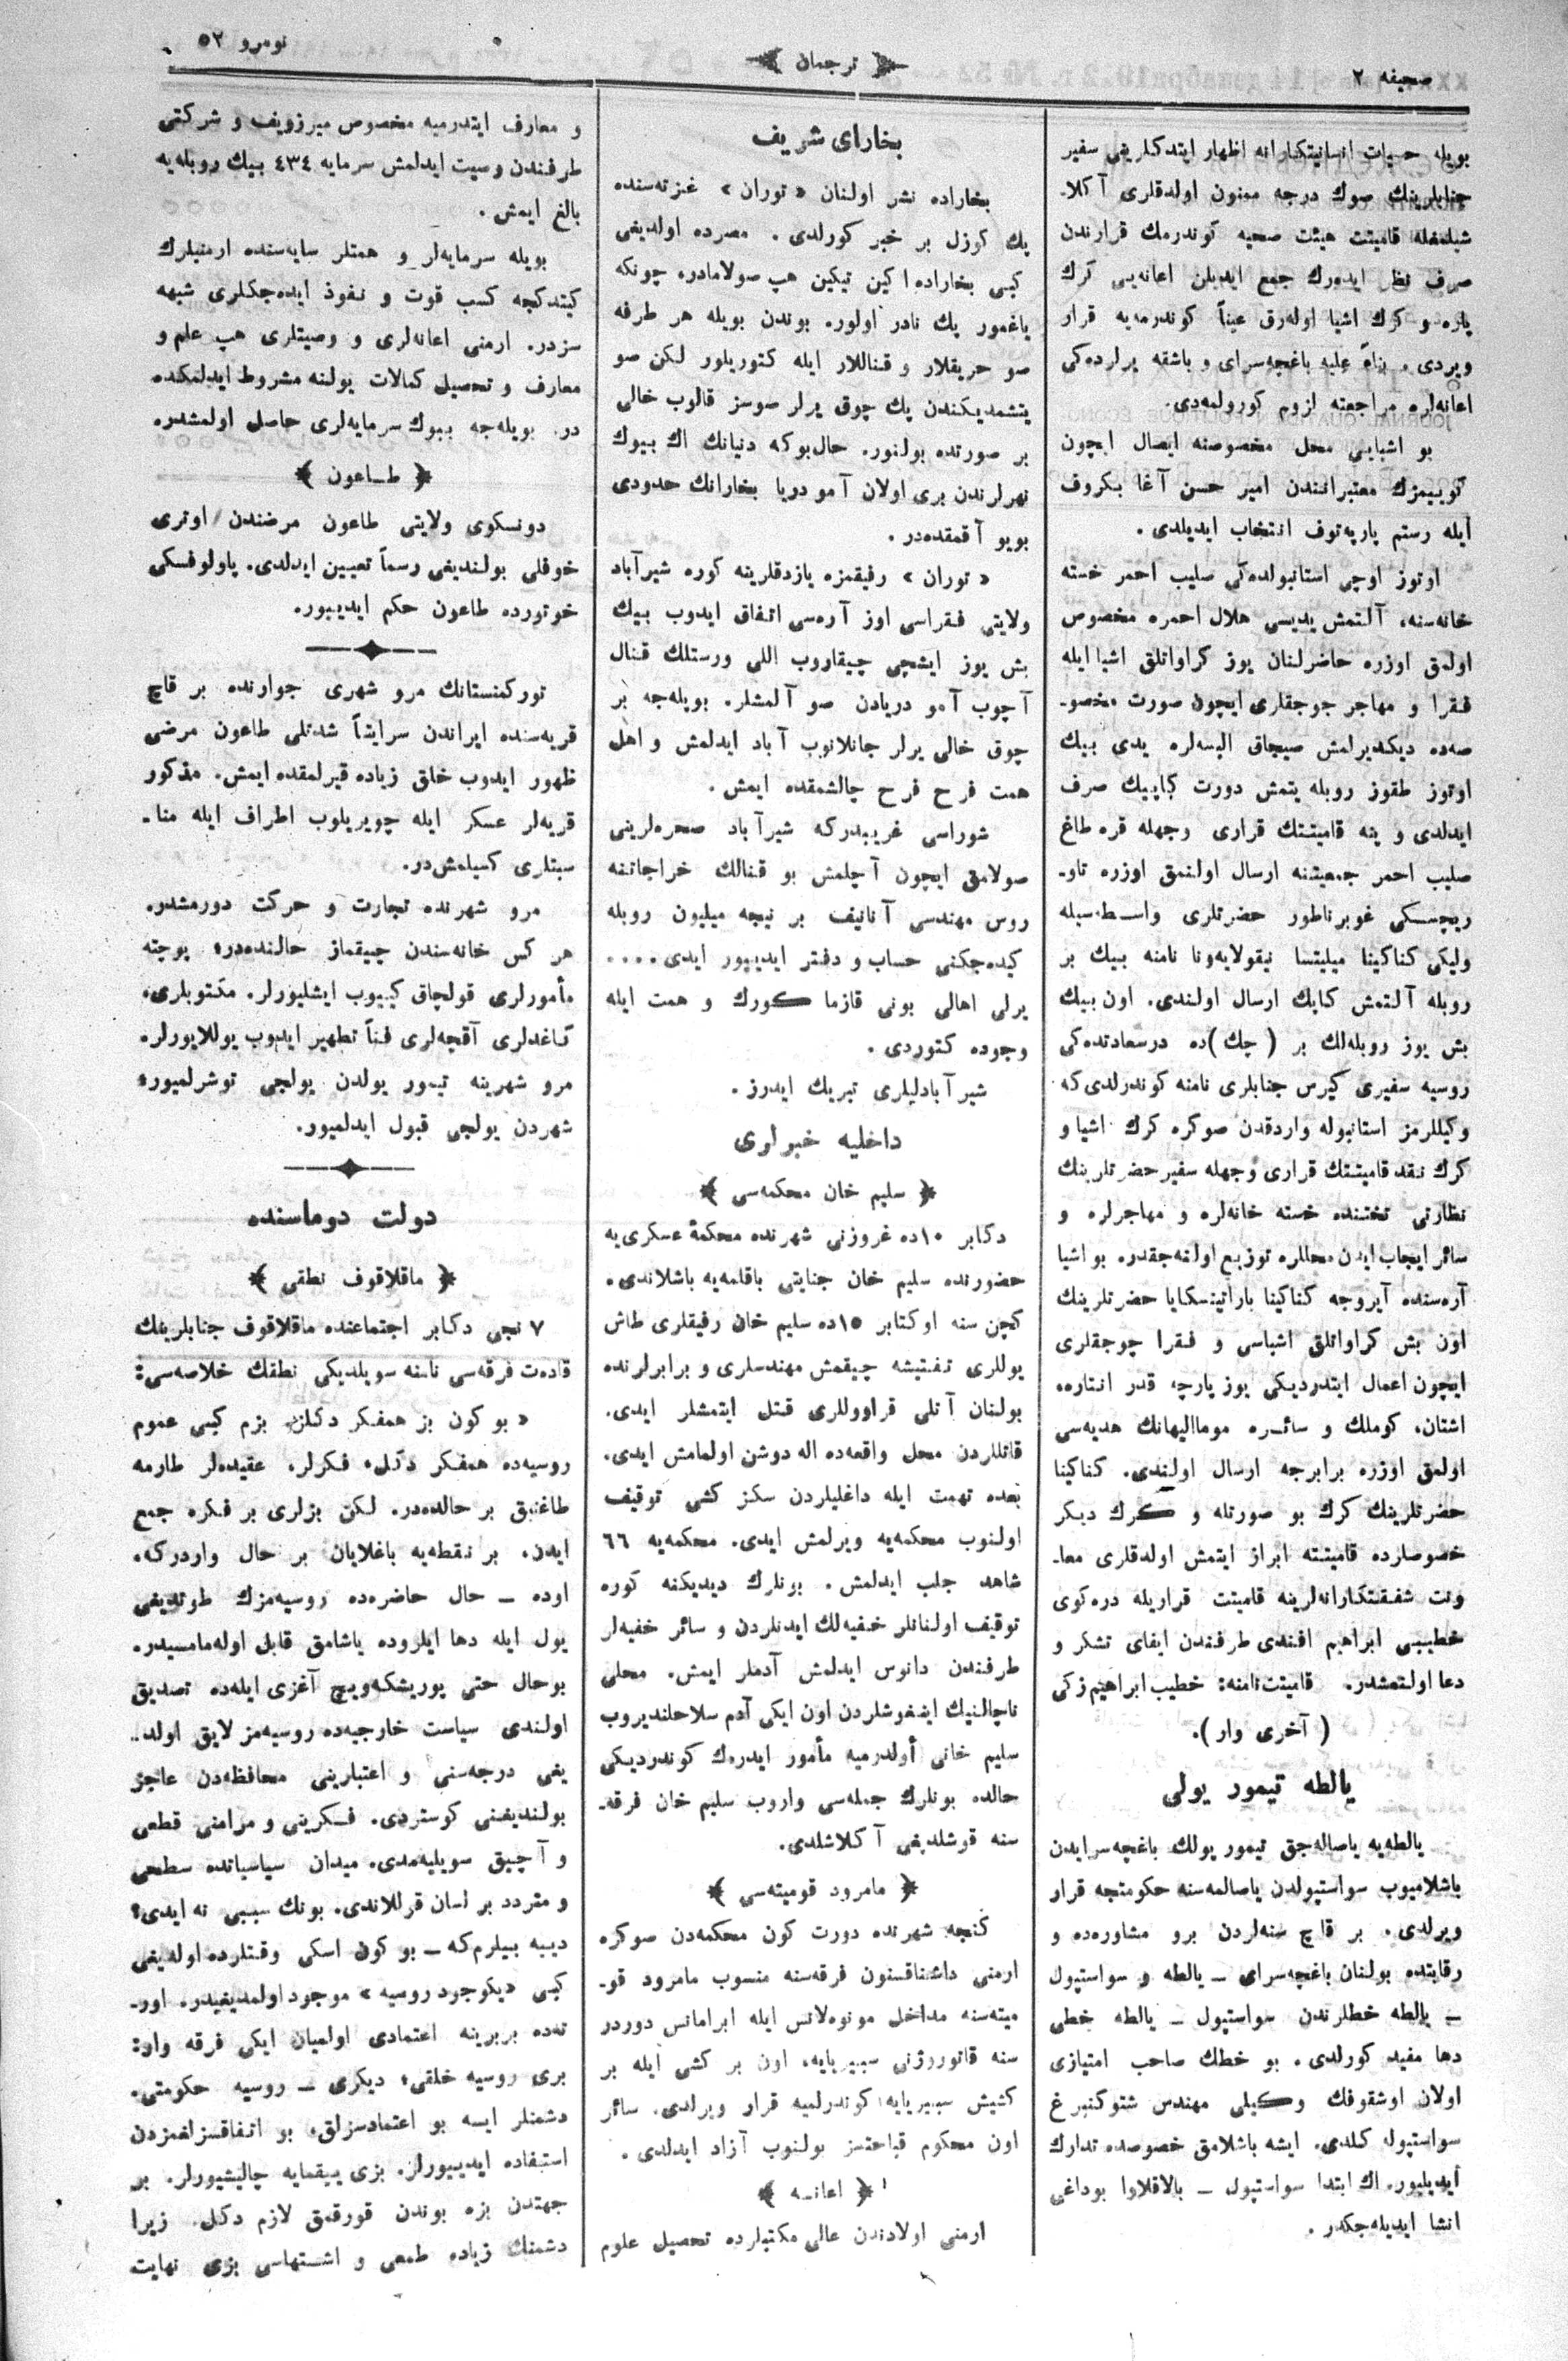 صحیفه ٢
ترجمان
نومرو ٥٢
بویله حسیات انسانیتکارانه اظهار ایتدکلرینی سفیر
جنابلرینك صوك درجه ممنون اولدقلری آ کلا۔
شیلمغله قامیتت هیئت صحیه کوندرمك قرارندن
صرف نظر ایدەرك جمع ایدیلن اعانه‌یی کرك
پاره و کرك اشیا اولەرق عیناً کوندرمه‌یه قرار
ویردی. بناءً علیه باغچه‌سرای و باشقه یرلرده‌کی
اعانه‌لره مراجعته لزوم کورولمه‌دی.
بو اشیایی محل مخصوصنه ایصال ایچون
کویمزك معتبراتندن امیر حسن آغا بکروف
ایله رستم پارپه‌توف انتخاب ایدیلدی.
اوتوز اوچی استانبولده‌کی صلیب احمر خسته
خانه‌سنه، آلتمش یدیسی هلال احمره مخصوص
اولمق اوزره حاضرلنان یوز کراواتلق اشیا ایله
فقرا و مهاجر جوجقلری ایچون صورت مخصو۔
صه‌ده دیکدیرلمش صیجاق البسه‌لره یدی بیك
اوتوز طقوز روبله یتمش دورت کاپیك صرف
ایدلدی و ینه قامیتتك قراری وجهله قره طاغ
صلیب احمر جمعیتنه ارسال اولنمق اوزره تاو۔
ریچسکی غوبرناطور حضرتلری واسطه‌سیله
ولیکی کناکینا میلیتسا نیقولایه‌ونا نامنه بیك بر
روبله آلتمش کاپك ارسال اولندی. اون بیك
بش یوز روبله‌لك بر (چك) ده درسعادتده‌کی
روسیه سفیری کیرس جنابلری نامنه کوندرلدی که
وکیللرمز استانبوله واردقدن صوکره کرك اشیا و
کرك نقد قامیتتك قراری وجهله سفیر حضرتلرینك
نظارتی تختنده خسته خانه‌لره و مهاجرلره و
سائر ایجاب ایدن محللره توزیع اولنه‌جقدر. بو اشیا
آره‌سنده آیروجه کناکینا باراتینسکایا حضرتلرینك
اون بش کراواتلق اشیاسی و فقرا چوجقلری
ایچون اعمال ایتدردیکی یوز پارچه قدر انتاره،
اشتان، کوملك و سائره مومالیهانك هدیه‌سی
اولمق اوزره برابرجه ارسال اولندی. کناکینا
حضرتلرینك کرك بو صورتله و کرك دیکر
خصوصارده قامیتته ابراز ایتمش اولدقلری معا۔
ونت شفقتکارانه‌لرینه قامیتت قراریله دره‌کوی
خطیبی ابراهیم افندی طرفندن ایفای تشکر و
دعا اولنمشدر. قامیتت نامنه: خطیب ابراهیم زکی
(آخری وار).
یالطه تیمور یولی
یالطه‌یه یاصاله‌جق تیمور یولك باغچه‌سرایدن
باشلامیوب سواستپولدن یاصالمه‌سنه حکومتجه قرار
ویرلدی. بر قاچ سنه‌لردن برو مشاوره‌ده و
رقابتده بولنان باغچه‌سرای ــ یالطه و سواستپول
ــ یالطه خطلرندن سواستپول ــ یالطه خطی
دها مفید کورلدی. بو خطك صاحب امتیازی
اولان اوشقوفك وکیلی مهندس شتوکنبرغ
سواستپوله کلدی. ایشه باشلامق خصوصده تدارك
ایدیلیور. اك ابتدا سواستپول ــ بالاقلاوا بوداغی
انشا ایدیله‌جکدر.
بخارای شریف
بخاراده نشر اولنان «توران» غزته‌سنده
پك کوزل بر خبر کورلدی. مصرده اولدیغی
کبی بخاراده اکین تیکین هپ صولامادر، چونکه
یاغمور پك نادر اولور. بوندن بویله هر طرفه
صو حریقلار و قناللار ایله کتوریلور لکن صو
یتشمدیکندن پك چوق یرلر صوسز قالوب خالی
بر صورتده بولنور. حال‌بوکه دنیانك اك بیوك
نهرلرندن بری اولان آمو دریا بخارانك حدودی
بویو آقمقده‌در.
«توران» رفیقمزه یازدقلرینه کوره شیرآباد
ولایتی فقراسی اوز آره‌سی اتفاق ایدوب بیك
بش یوز ایشچی چیقاروب اللی ورستلك قنال
آچوب آمو دریادن صو آلمشلر. بویله‌جه بر
چوق خالی یرلر جانلانوب آباد ایدلمش و اهل
همت فرح فرح چالشمقده ایمش.
شوراسی غریبدرکه شیرآباد صحره‌لرینی
صولامق ایچون آچلمش بو قنالك خراجاتنه
روس مهندسی آنانیف بر نیچه میلیون روبله
کیده‌جکنی حساب و دفتر ایدیپور ایدی....
یرلی اهالی بونی قازما کورك و همت ایله
وجوده کتوردی.
شیرآبادلیلری تبریك ایدرز.
داخلیه خبرلری
سلیم خان محکمه‌سی
دکابر ١٠ده غروزنی شهرنده محکمهٔ عسکریه
حضورنده سلیم خان جنایتی باقلمه‌یه باشلاندی.
کچن سنه اوکتابر ١٥ده سلیم خان رفیقلری طاش
یوللری تفتیشه چیقمش مهندسلری و برابرلرنده
بولنان آتلی قراووللری قتل ایتمشلر ایدی.
قاتللردن محل واقعه‌ده اله دوشن اولمامش ایدی.
بعده تهمت ایله داغلیلردن سکز کشی توقیف
اولنوب محکمه‌یه ویرلمش ایدی. محکمه‌یه ٦٦
شاهد جلب ایدلمش. بونلرك دیدیکنه کوره
توقیف اولنانلر خفیه‌لك ایدنلردن و سائر خفیه‌لر
طرفندن دانوس ایدلمش آدملر ایمش. محلی
ناچالنیك اینغوشلردن اون ایکی آدم سلاحلندیروب
سلیم خانی أولدرمیه مأمور ایدرك کوندردیکی
حالده بونلرك جمله‌سی واروب سلیم خان فرقه۔
سنه قوشلدیغی آکلاشلدی.
مامرود قومیته‌سی
کنجه شهرنده دورت کون محکمه‌دن صوکره
ارمنی داشناقسنون فرقه‌سنه منسوب مامرود قو۔
میته‌سنه مداخل مونوه‌لانس ایله ابرامانس دوردر
سنه قاتوررژنی سیبیریایه، اون بر کشی ایله بر
کشیش سیبیریایه کوندرلمیه قرار ویرلدی. سائر
اون محکوم قباحتسز بولنوب آزاد ایدلدی.
اعانه
ارمنی اولادندن عالی مکتبلرده تحصیل علوم
و معارف ایتدرمیه مخصوص میرزویف و شرکتی
طرفندن وصیت ایدلمش سرمایه ٤٣٤ بیك روبله‌یه
بالغ ایمش.
بویله سرمایه‌لر و همتلر سایه‌سنده ارمنیلرك
کیتدکجه کسب قوت و نفوذ ایده‌جکلری شبهه
سزدر. ارمنی اعانه‌لری و وصیتلری هپ علم و
معارف و تحصیل کمالات یولنه مشروط ایدلمکده
در. بویله‌جه بیوك سرمایه‌لری حاصل اولمشدر.
طاعون
دونسکوی ولایتی طاعون مرضندن اوتری
خوفلی بولندیغی رسماً تعیین ایدلدی. پاولوفسکی
خوتورده طاعون حکم ایدییور.
تورکمنستانك مرو شهری جوارنده بر قاچ
قریه‌سنده ایراندن سرایتاً شدتلی طاعون مرضی
ظهور ایدوب خلق زیاده قیرلمقده ایمش. مذکور
قریه‌لر عسکر ایله چویریلوب اطراف ایله منا۔
سبتلری کسیلمش‌در.
مرو شهرنده تجارت و حرکت دورمشدر.
هر کس خانه‌سندن چیقماز حالنده‌در؛ پوچته
مأمورلری قولچاق کییوب ایشلیورلر. مکتوبلری،
کاغدلری آقچه‌لری فناً تطهیر ایدوب یوللایورلر.
مرو شهرینه تیمور یولدن یولجی توشرلمیور؛
شهردن یولجی قبول ایدلمیور.
دولت دوماسنده
ماقلاقوف نطقی
٧ نجی دکابر اجتماعنده ماقلاقوف جنابلرینك
قاده‌ت فرقه‌سی نامنه سویلدیکی نطقك خلاصه‌سی:
«بو کون بز همفکر دکلز، بزم کبی عموم
روسیه‌ده همفکر دکل، فکرلر، عقیده‌لر طارمه
طاغنیق بر حالده‌در. لکن بزلری بر فکره جمع
ایدن، بر نقطه‌یه باغلایان بر حال واردرکه،
اوده ــ حال حاضره‌ده روسیه‌مزك طوتدیغی
یول ایله دها ایلروده یاشامق قابل اوله‌مامسیدر.
بوحال حتی پوریشکه‌ویچ آغزی ایله‌ده تصدیق
اولندی سیاست خارجیه‌ده روسیه‌مز لایق اولد۔
یغی درجه‌سنی و اعتبارینی محافظه‌دن عاجز
بولندیغنی کوستردی. فکرینی و مرامنی قطعی
و آچیق سویلیه‌مدی. میدان سیاسیاتده سطحی
و متردد بر لسان قوللاندی. بونك سببی نه ایدی؟
دیبه بیلرم‌که ــ بو کون اسکی وقتلرده اولدیغی
کبی «یکوجود روسیه» موجود اولمدیغیدر. اور۔
ته‌ده بربرینه اعتمادی اولمیان ایکی فرقه وار:
بری روسیه خلقی؛ دیکری ــ روسیه حکومتی.
دشمنلر ایسه بو اعتمادسزلق، بو اتفاقسزلغمزدن
استفاده ایدییورلر. بزی ییقمایه چالیشیورلر. بر
جهتدن بزه بوندن قورقمق لازم دکل. زیرا
دشمنك زیاده طمعی و اشتهاسی بزی نهایت